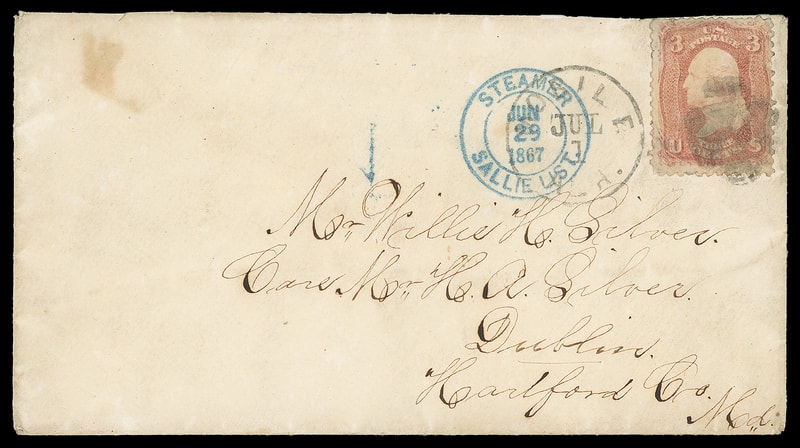 3 U.S. 3
POSTAGE
U S
STEAMER
JUN
29
1867
SALLIE LIST.
JUL
1
Mr. Willis H. Silver.
Care Mr. H. A. Silver.
Dublin.
Harlford Co.
Md.